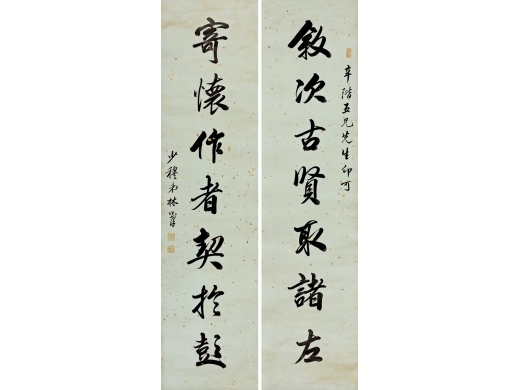 辛階五兄先生印可
敘次古賢取諸左
寄懷作者契於彭
少穆弟林則徐